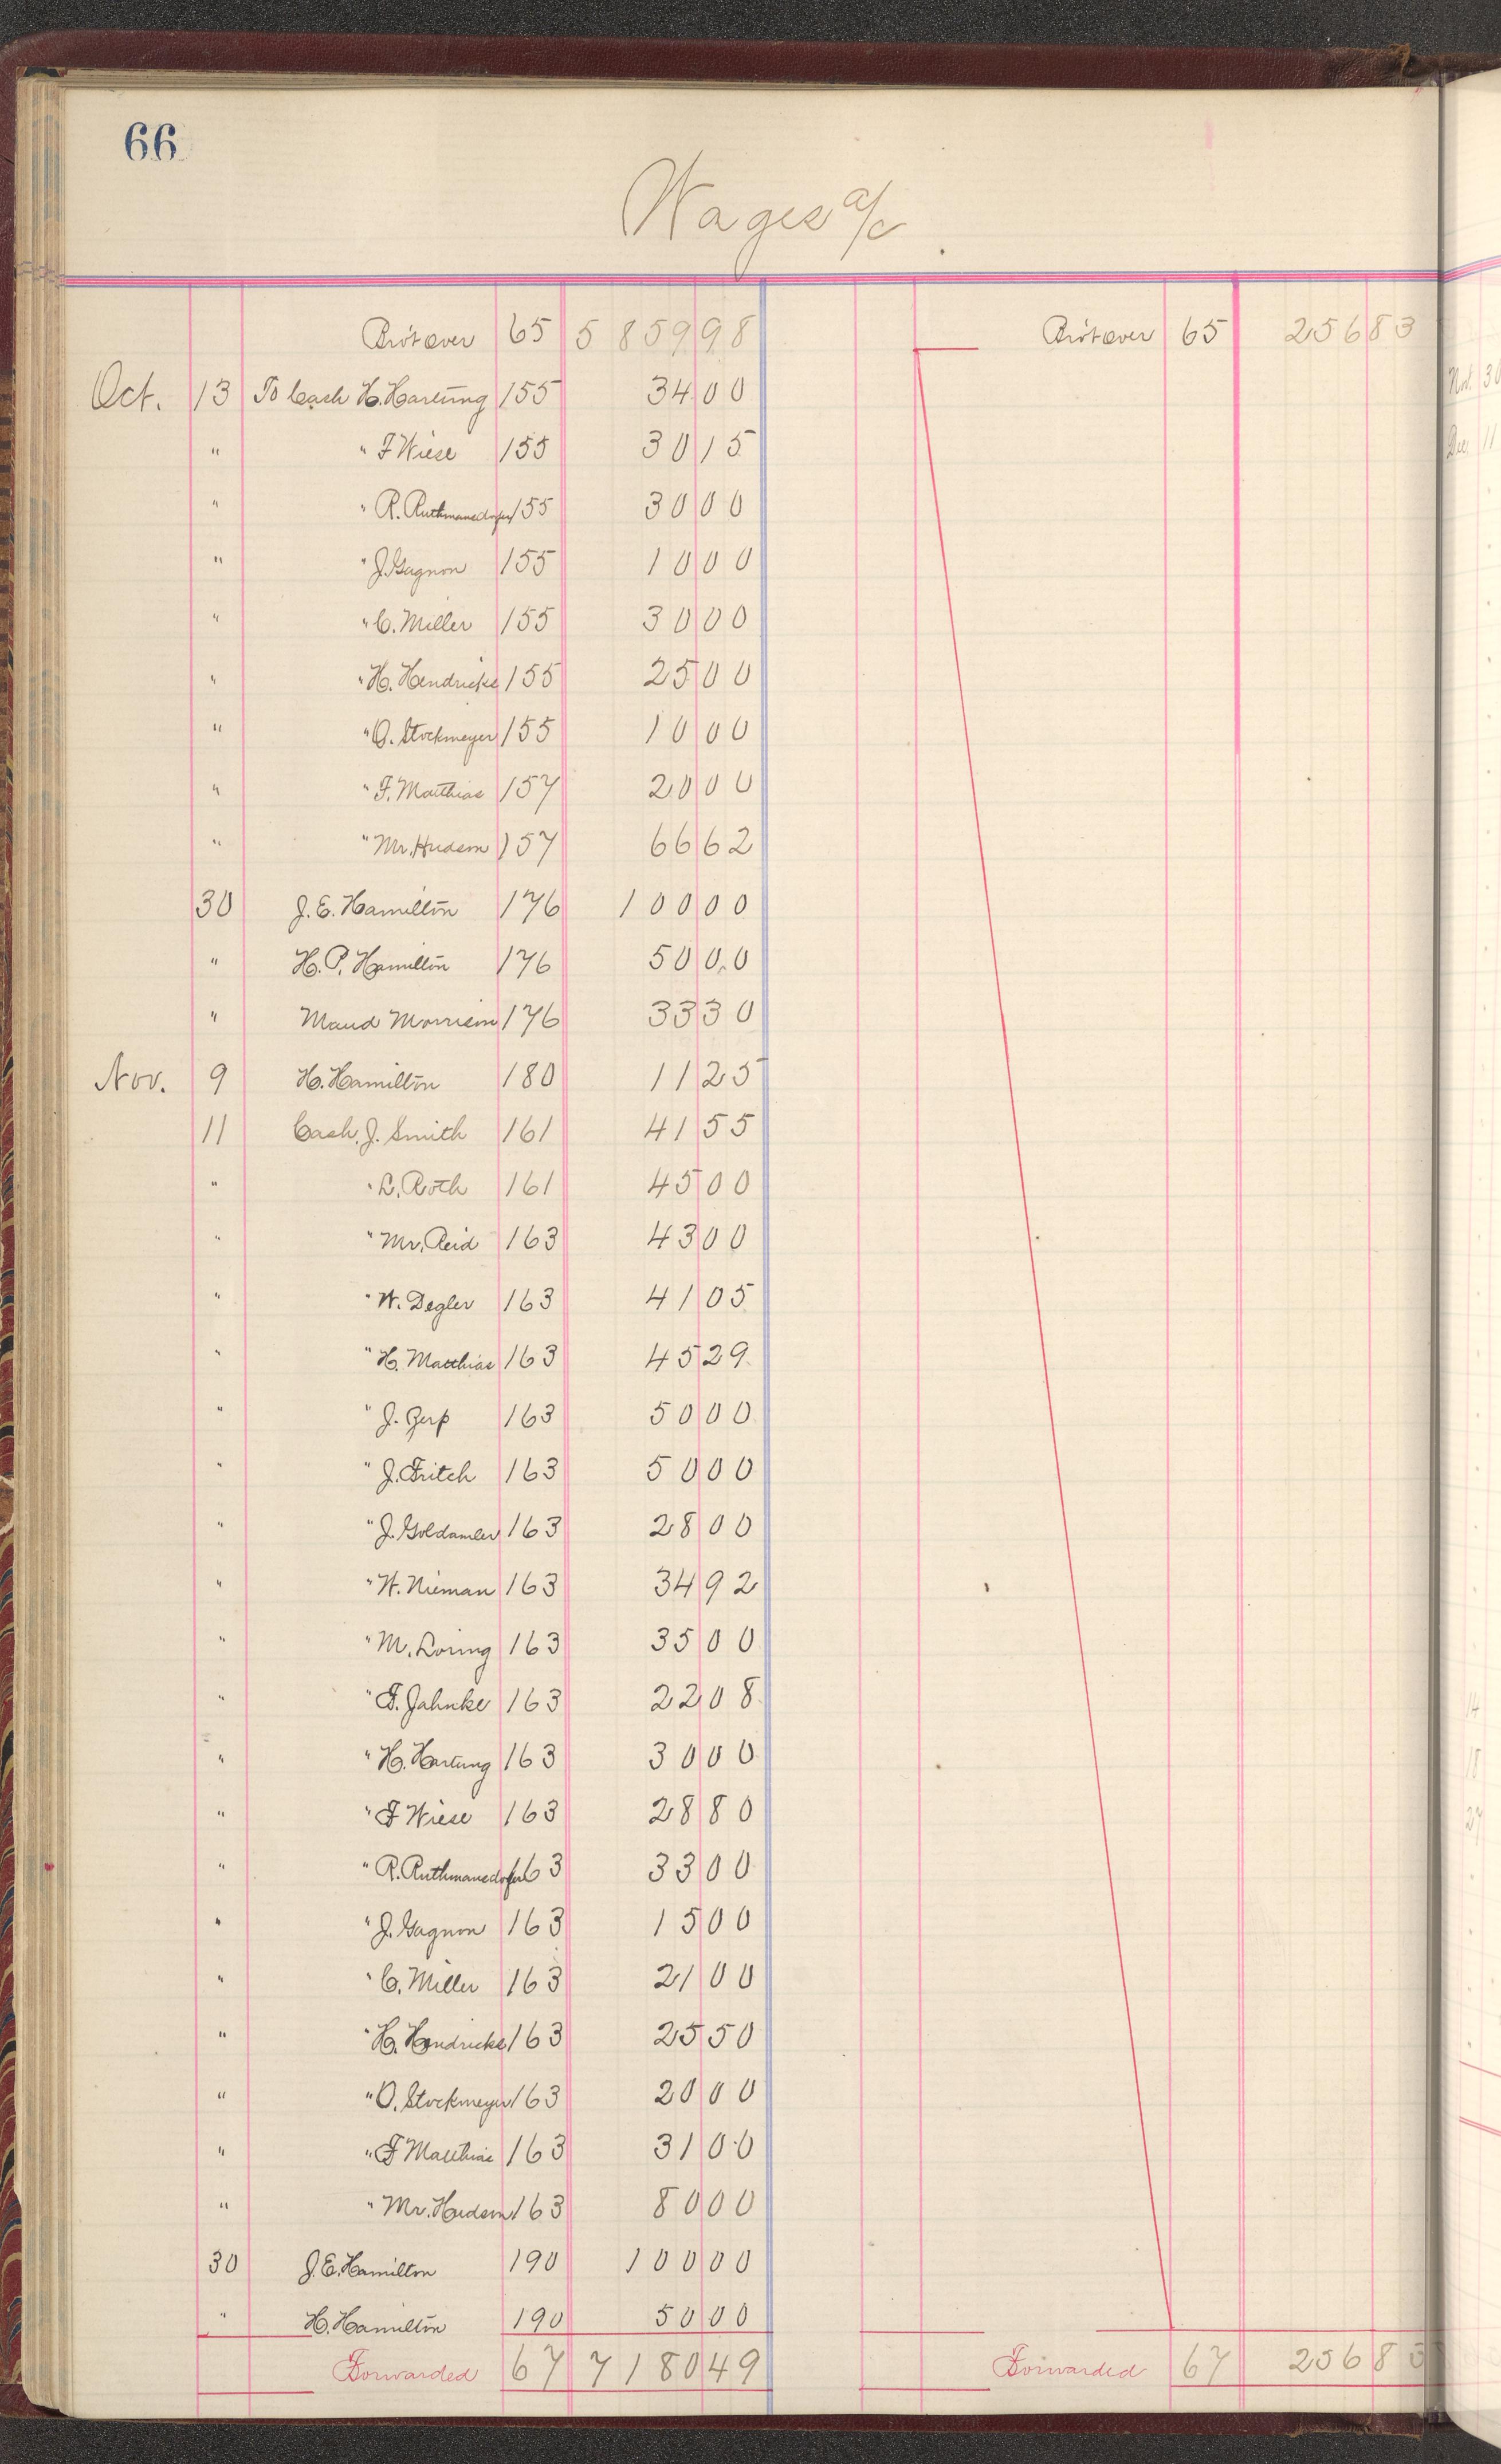 66
Wages a/c
Brot over 65 5 859 98 Brot over 65 256 83
Oct. 13 To Cash H. Hartung 155 34 00
" " F Wiese 155 30 15
" " R. Ruthmansdorfer 155 30 00
" " J. Gagnon 155 10 00
" " C. Miller 155 30 00
" " H. Hendricks 155 25 00
" " O. Stockmeyer 155 10 00
" " F. Matthias 157 20 00
" " Mr. Hudson 157 66 62
30 J. E. Hamilton 176 100 00
" H. P. Hamilton 176 50 00
" Maud Morrison 176 33 30
Nov. 9 H. Hamilton 180 11 25
11 Cash, J. Smith 161 41 55
" " L. Roth 161 45 00
" " Mr. Reid 163 43 00
" " W. Degler 163 41 05
" " H. Matthias 163 45 29
" " J. 163 50 00
" " J. Fritch 163 50 00
" " J. Goldamler 163 28 00
" " W. Nieman 163 34 92
" " M. Loring 163 35 00
" " F. Jahnke 163 22 08
" " H. Hartung 163 30 00
" " F Wiese 163 28 80
" " R. Ruthmansdorfer 163 33 00
" " J. Gagnon 163 15 00
" " C. Miller 163 21 00
" " H. Hendricks 163 25 50
" " O. Stockmeyer 163 20 00
" " F Matthias 163 31 00
" " Mr. Hudson 163 80 00
30 J. E. Hamilton 190 100 00
" H. Hamilton 190 50 00
Forwarded 67 7180 49 Forwarded 67 256 83
Nov. 30
Dec. 11
14
18
27